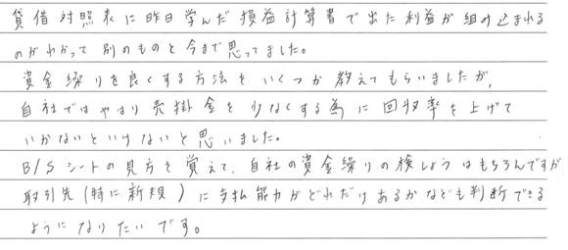 貸借対照表に昨日学んだ損益計算書で出た利益が組み込まれる
のがわかって別のものと今まで思ってました。
資金繰りを良くする方法をいくつか教えてもらいましたが、
自社ではやはり売掛金を少なくする為に回収率を上げて
いかないといけないと思いました。
B/Sシートの見方を覚えて、自社の資金繰りの検しょうはもちろんですが
取引先(特に新規)に支払能力がどれだけあるかなども判断できる
ようになりたいです。